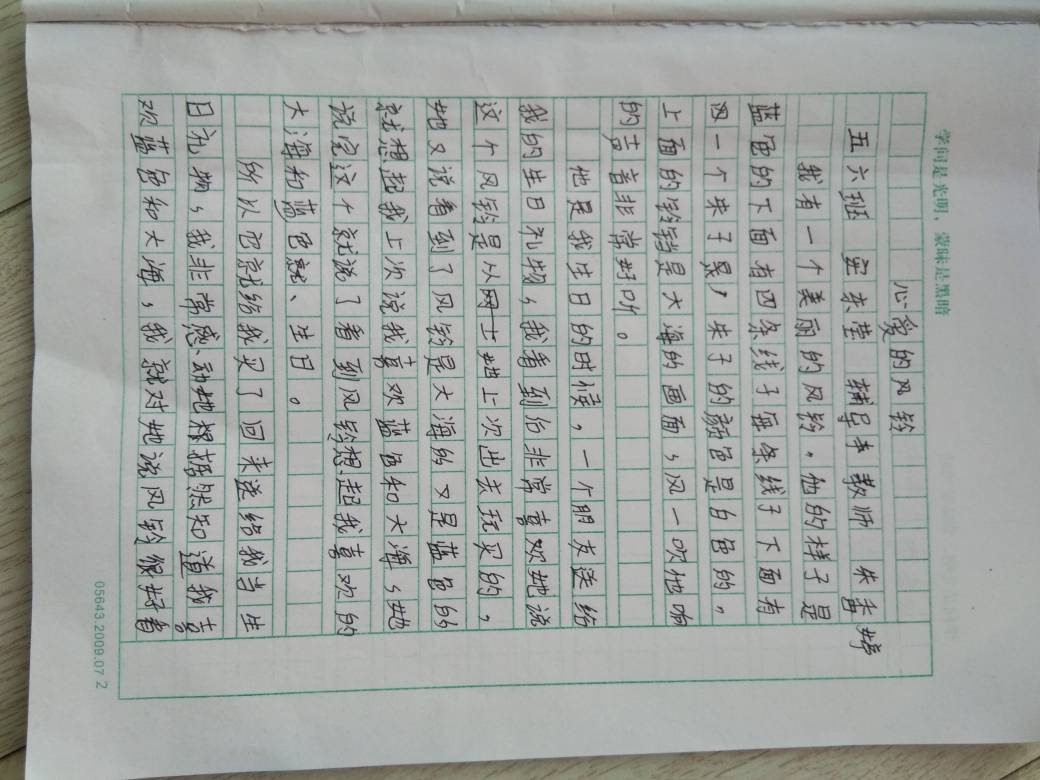 学问是光明，蒙昧是黑暗
心爱的风铃
五六班 辅导教师 朱香婷
我有一个美丽的风铃。他的样子是
蓝色的下面有四条线子每条线子下面有
四一个朱子是，朱子的颜色是白色的，
上面的铃铛是大海的画面，风一吹他响
的声音非常好听。
他是我生日的时候，一个朋友送给
我的生日礼物，我看到后非常喜欢她说
这个风铃是从网士她上次出去玩买的，
她又说看到了风铃是大海的又是蓝色的
就想起我上次说我喜欢蓝色和大海，她
说完这个就说了看到风铃想起我喜欢的
大海和蓝色就、生日。
所以它就给我买了回来送给我当生
日礼物，我非常感动她居然知道我喜
欢蓝色和大海，我就对她说风铃很好看
05643.2009.07 2